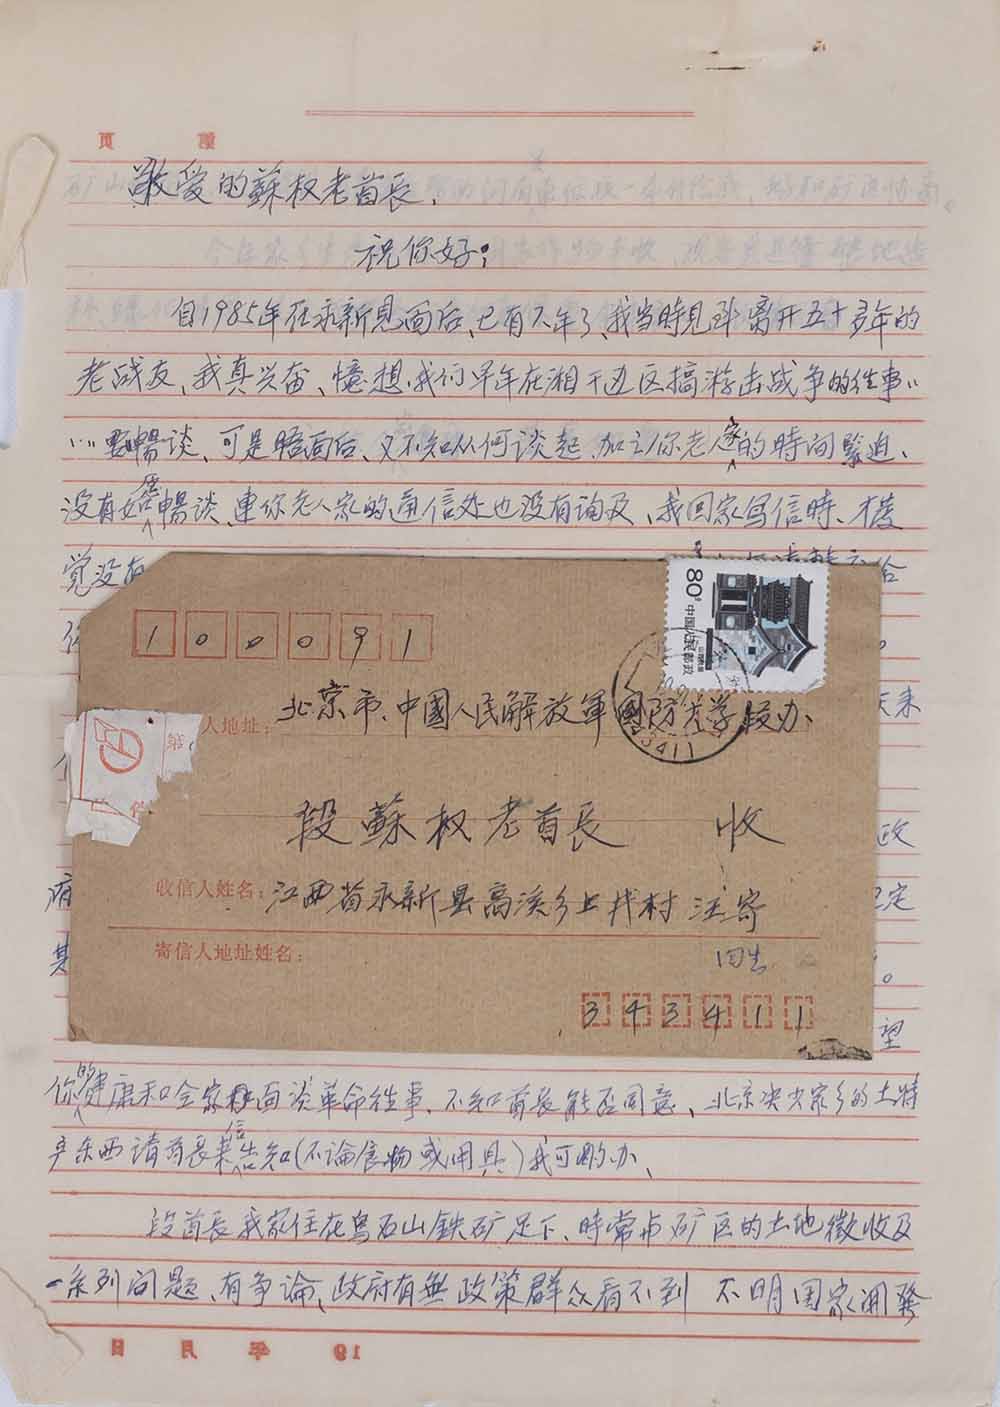 敬爱的蘇权老首長、
祝你好；
自1985年在永新見面后、已有不年了、我当時見到离开五十多年的
老战友、我真兴奋、憶想我们早年在湘干边区搞游击战争的往事、
暢谈、可是晤面后、又不知从何谈起、加之你老人家的時间緊迫、
没有好好暢谈、連你老人家的通信处也没有询及、我回家写信時、才發
觉没有
80分 中国人民邮政
100091
人地址：北京市、中國人民解放軍國防大学校办、
段蘇权老首長 收
收信人姓名：江西省永新县高溪乡上 村 汪寄
寄信人地址姓名：
343411
未
政
府 定
其 。
望
你的健康和全家 面谈革命往事、不知首長能否同意、北京决少家乡的土特
产东西请首長来信告知（不論食物或用具）我可 办、
段首長我家住在烏石山鉄矿足下、時常与矿区的土地徵收及
一系列问题、有争论、政府有無政策群众看不到 不明国家開發
19 年 月 日